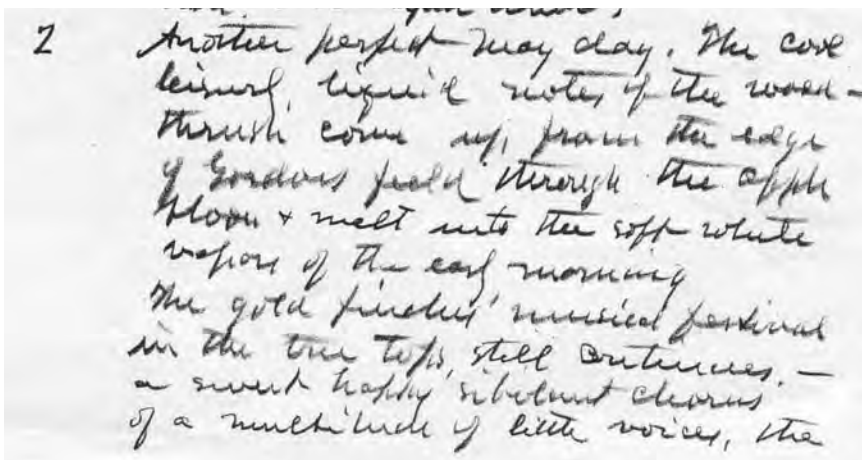 2 Another perfect May day. The cool
leisurly, liquid notes of the wood-
thrush come up, from the edge
of Gordons field through the apple
bloom & melt into the soft white
vapors of the early morning
The gold finches' musical festival
in the tree tops, still continues. —
a sweet happy sibelant chorus
of a multitude of little voices, the